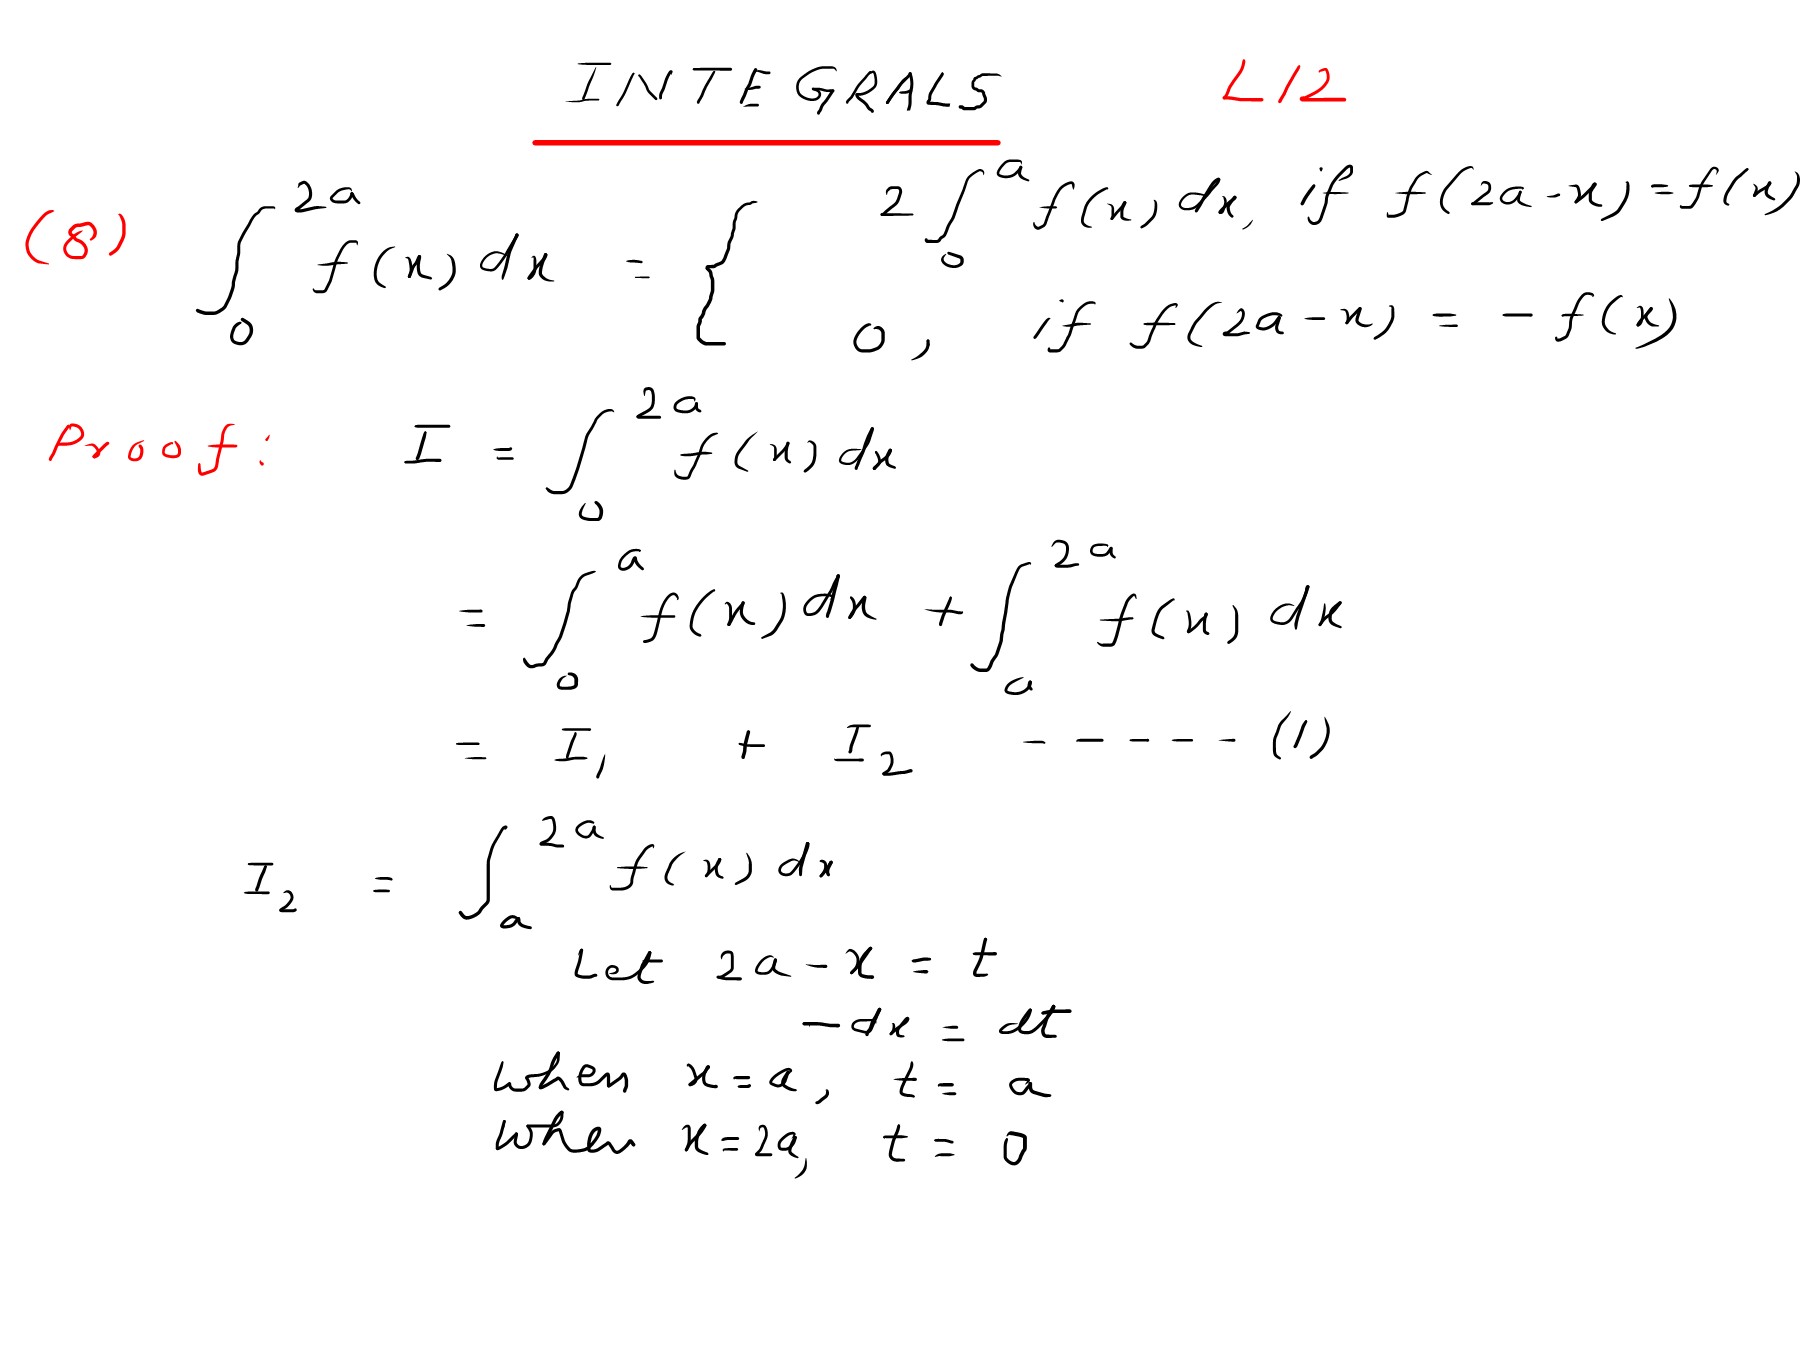 INTEGRALS L12
(8) ∫₀^{2a} f(x) dx = { 2 ∫₀^{a} f(x) dx, if f(2a-x) = f(x)
0, if f(2a-x) = -f(x)
Proof: I = ∫₀^{2a} f(x) dx
= ∫₀^{a} f(x) dx + ∫ₐ^{2a} f(x) dx
= I₁ + I₂ ----- (1)
I₂ = ∫ₐ^{2a} f(x) dx
Let 2a-x = t
-dx = dt
when x=a, t= a
when x=2a, t= 0